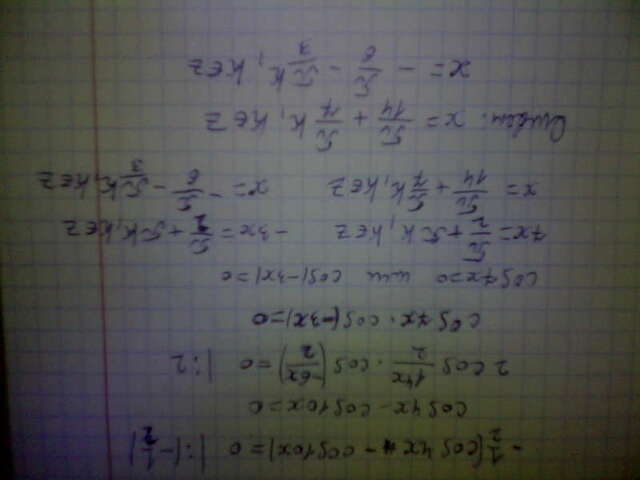 -1/2(cos4x - cos10x)=0 |:(-1/2)
cos4x - cos10x=0
2cos 14x/2 · cos(-6x/2)=0 |:2
cos7x · cos(-3x)=0
cos7x=0 или cos(-3x)=0
7x=π/2+πk, k∈Z -3x=π/2+πk, k∈Z
x=π/14+π/7k, k∈Z x=-π/6-π/3k, k∈Z
Ответ: x=π/14+π/7k, k∈Z
x=-π/6-πk/3, k∈Z